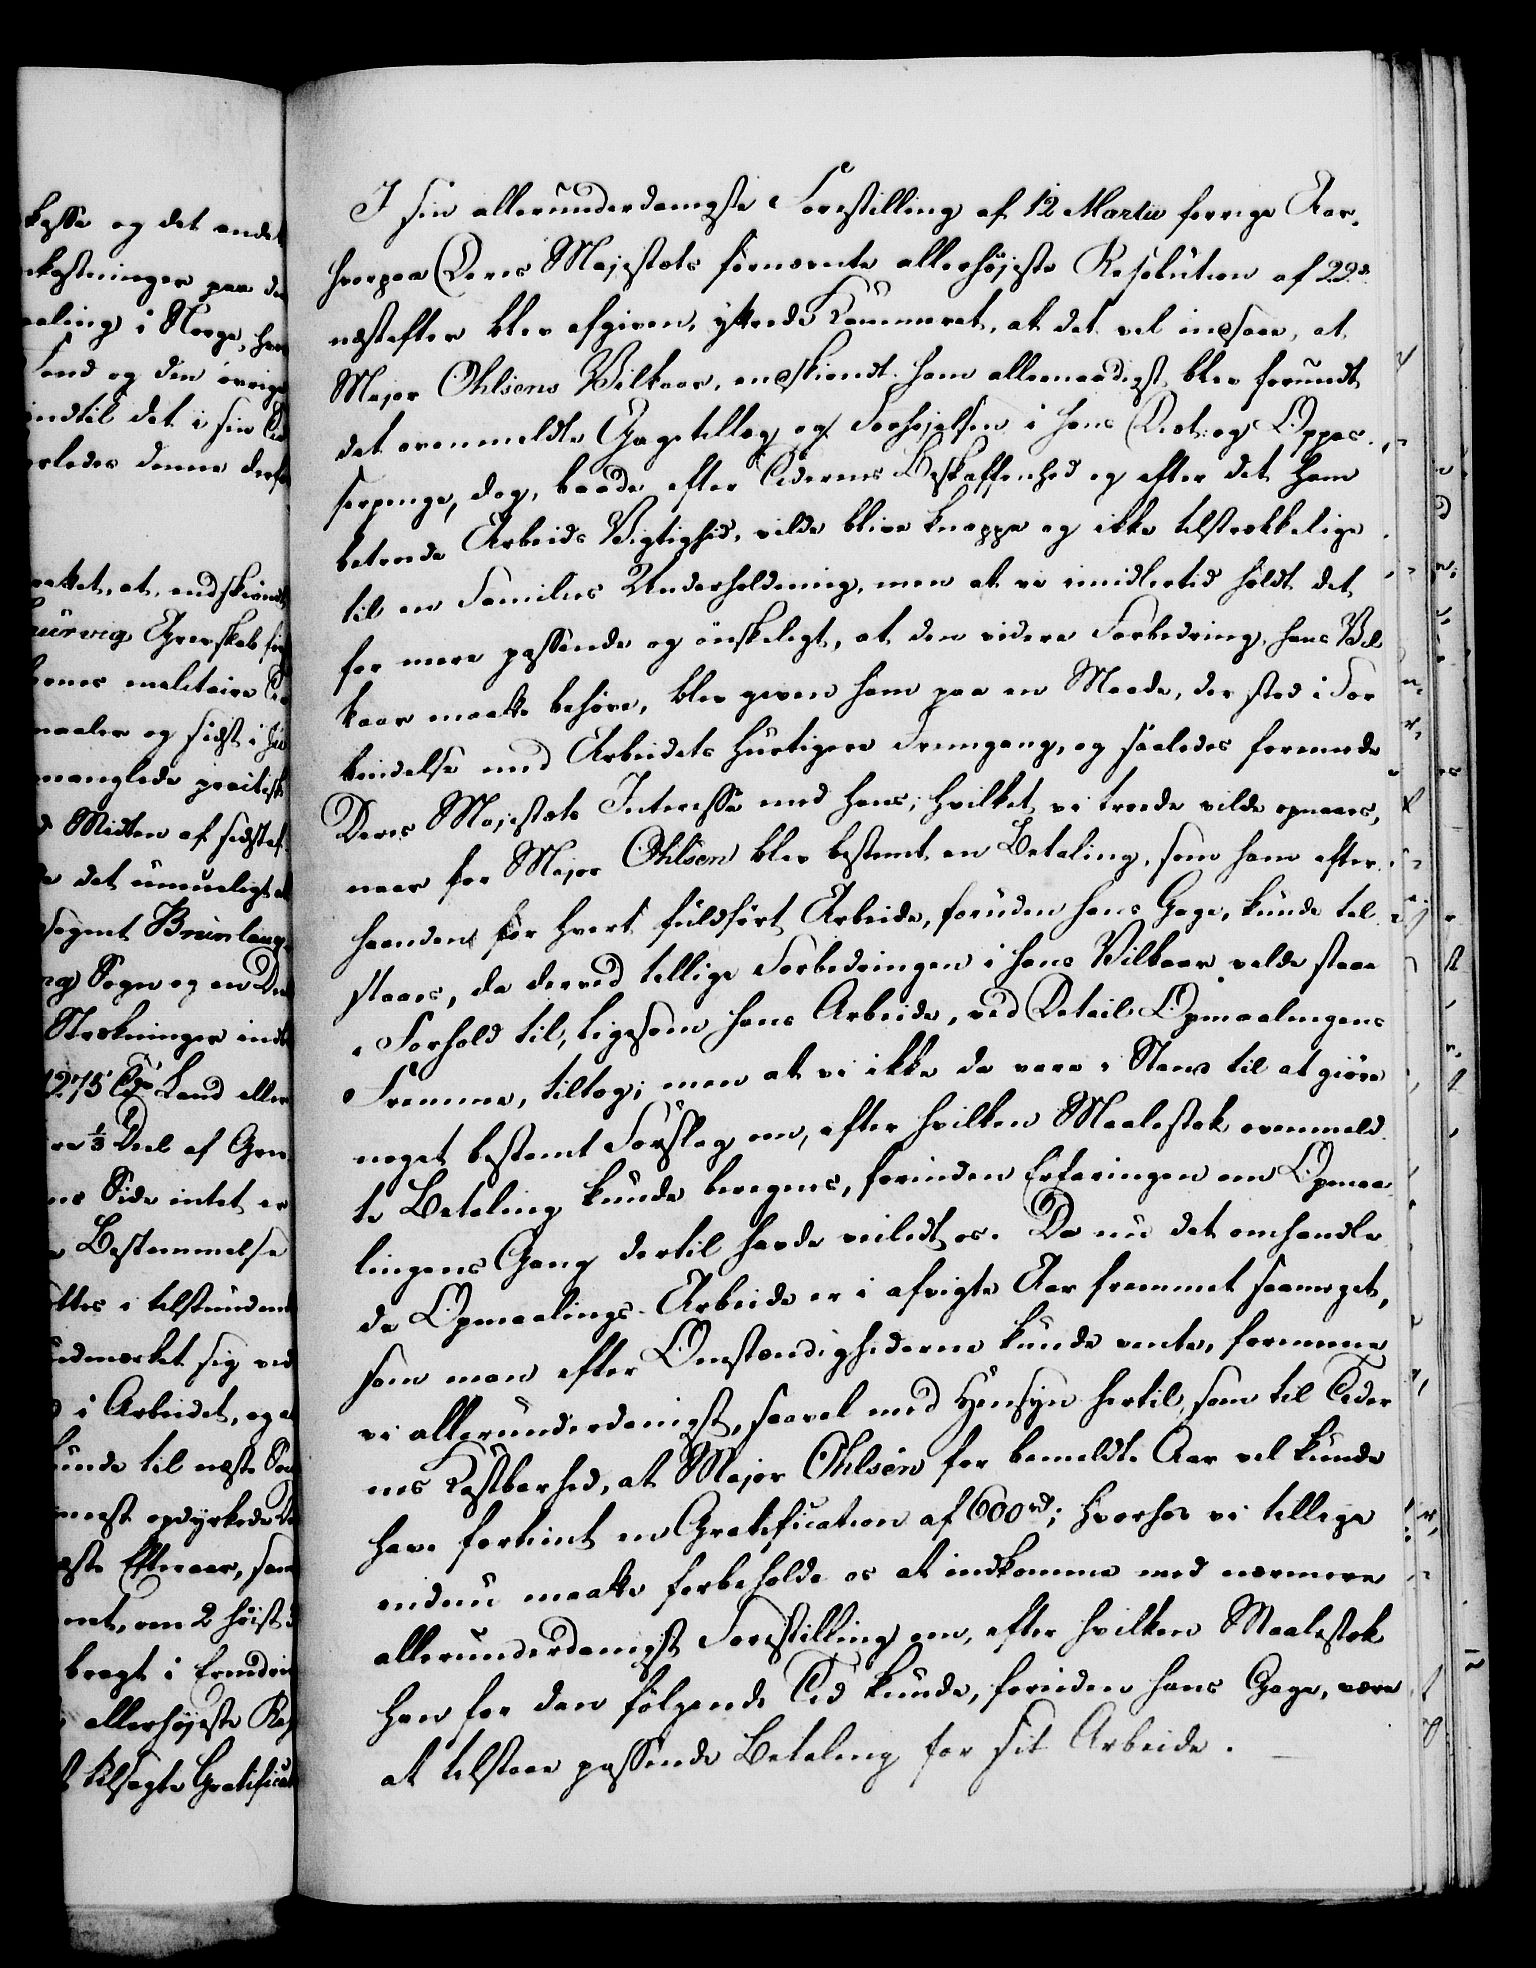 I sin allerunderdanigste Forestilling af 12 Martii forrige Aar,
hvorpaa Deres Majestæts fornævnte allerhøjeste Resolution af 22d
næstefter blev afgiven, yttrede Kammeret, at det vel indsaae, at
Major Ohlsens Vilkaar, endskiøndt ham allernaadigst blev forundt
det ovenmeldte Gagetillæg og Forhøjelsen i hans Diæt- og Oppas-
serpenge, dog, baade efter Tidernes Beskaffenhed og efter det ham
betroede Arbeids Vigtighed, vilde blive knappe og ikke tilstrækkelige
til en Families Underholdning, men at vi imidlertid holdt det
for mere passende og ønskeligt, at den videre Forbedring, hans Vil-
kaar maatte behøve, blev given ham paa en Maade, der stod i For-
bindelse med Arbeidets hurtigere Fremgang, og saaledes foreenede
Deres Majestæts Interesse med hans; hvilket vi troede vilde opnaaes,
naar for Major Ohlsen blev bestemt en Betaling, som ham efter-
haanden for hvert fuldført Arbeide, foruden hans Gage, kunde til-
staaes, da derved tillige Forbedringen i hans Vilkaar vilde staae
i Forhold til, ligesom hans Arbeide, ved Detail-Opmaalingens
Fremme, tiltog; men at vi ikke da vare i Stand til at giøre
noget bestemt Forslag om, efter hvilken Maalestok ovenmeld-
te Betaling kunde beregnes, forinden Erfaringen om Opmaa-
lingens Gang dertil havde veiledt os. Da nu det omhandle-
de Opmaalings-Arbeide er i afvigte Aar fremmet saameget,
som man efter Omstændighederne kunde vente, formene
vi allerunderdanigst, saavel med Hensyn hertil, som til Tider-
nes Kostbarhed, at Major Ohlsen for bemeldte Aar vel kunde
have fortient en Gratification af 600 rd; hvorhos vi tillige
endnu maatte forbeholde os at indkomme med nærmere
allerunderdanigst Forestilling om, efter hvilken Maalestok
ham for den følgende Tid kunde, foruden hans Gage, være
at tilstaae passende Betaling for sit Arbeide.